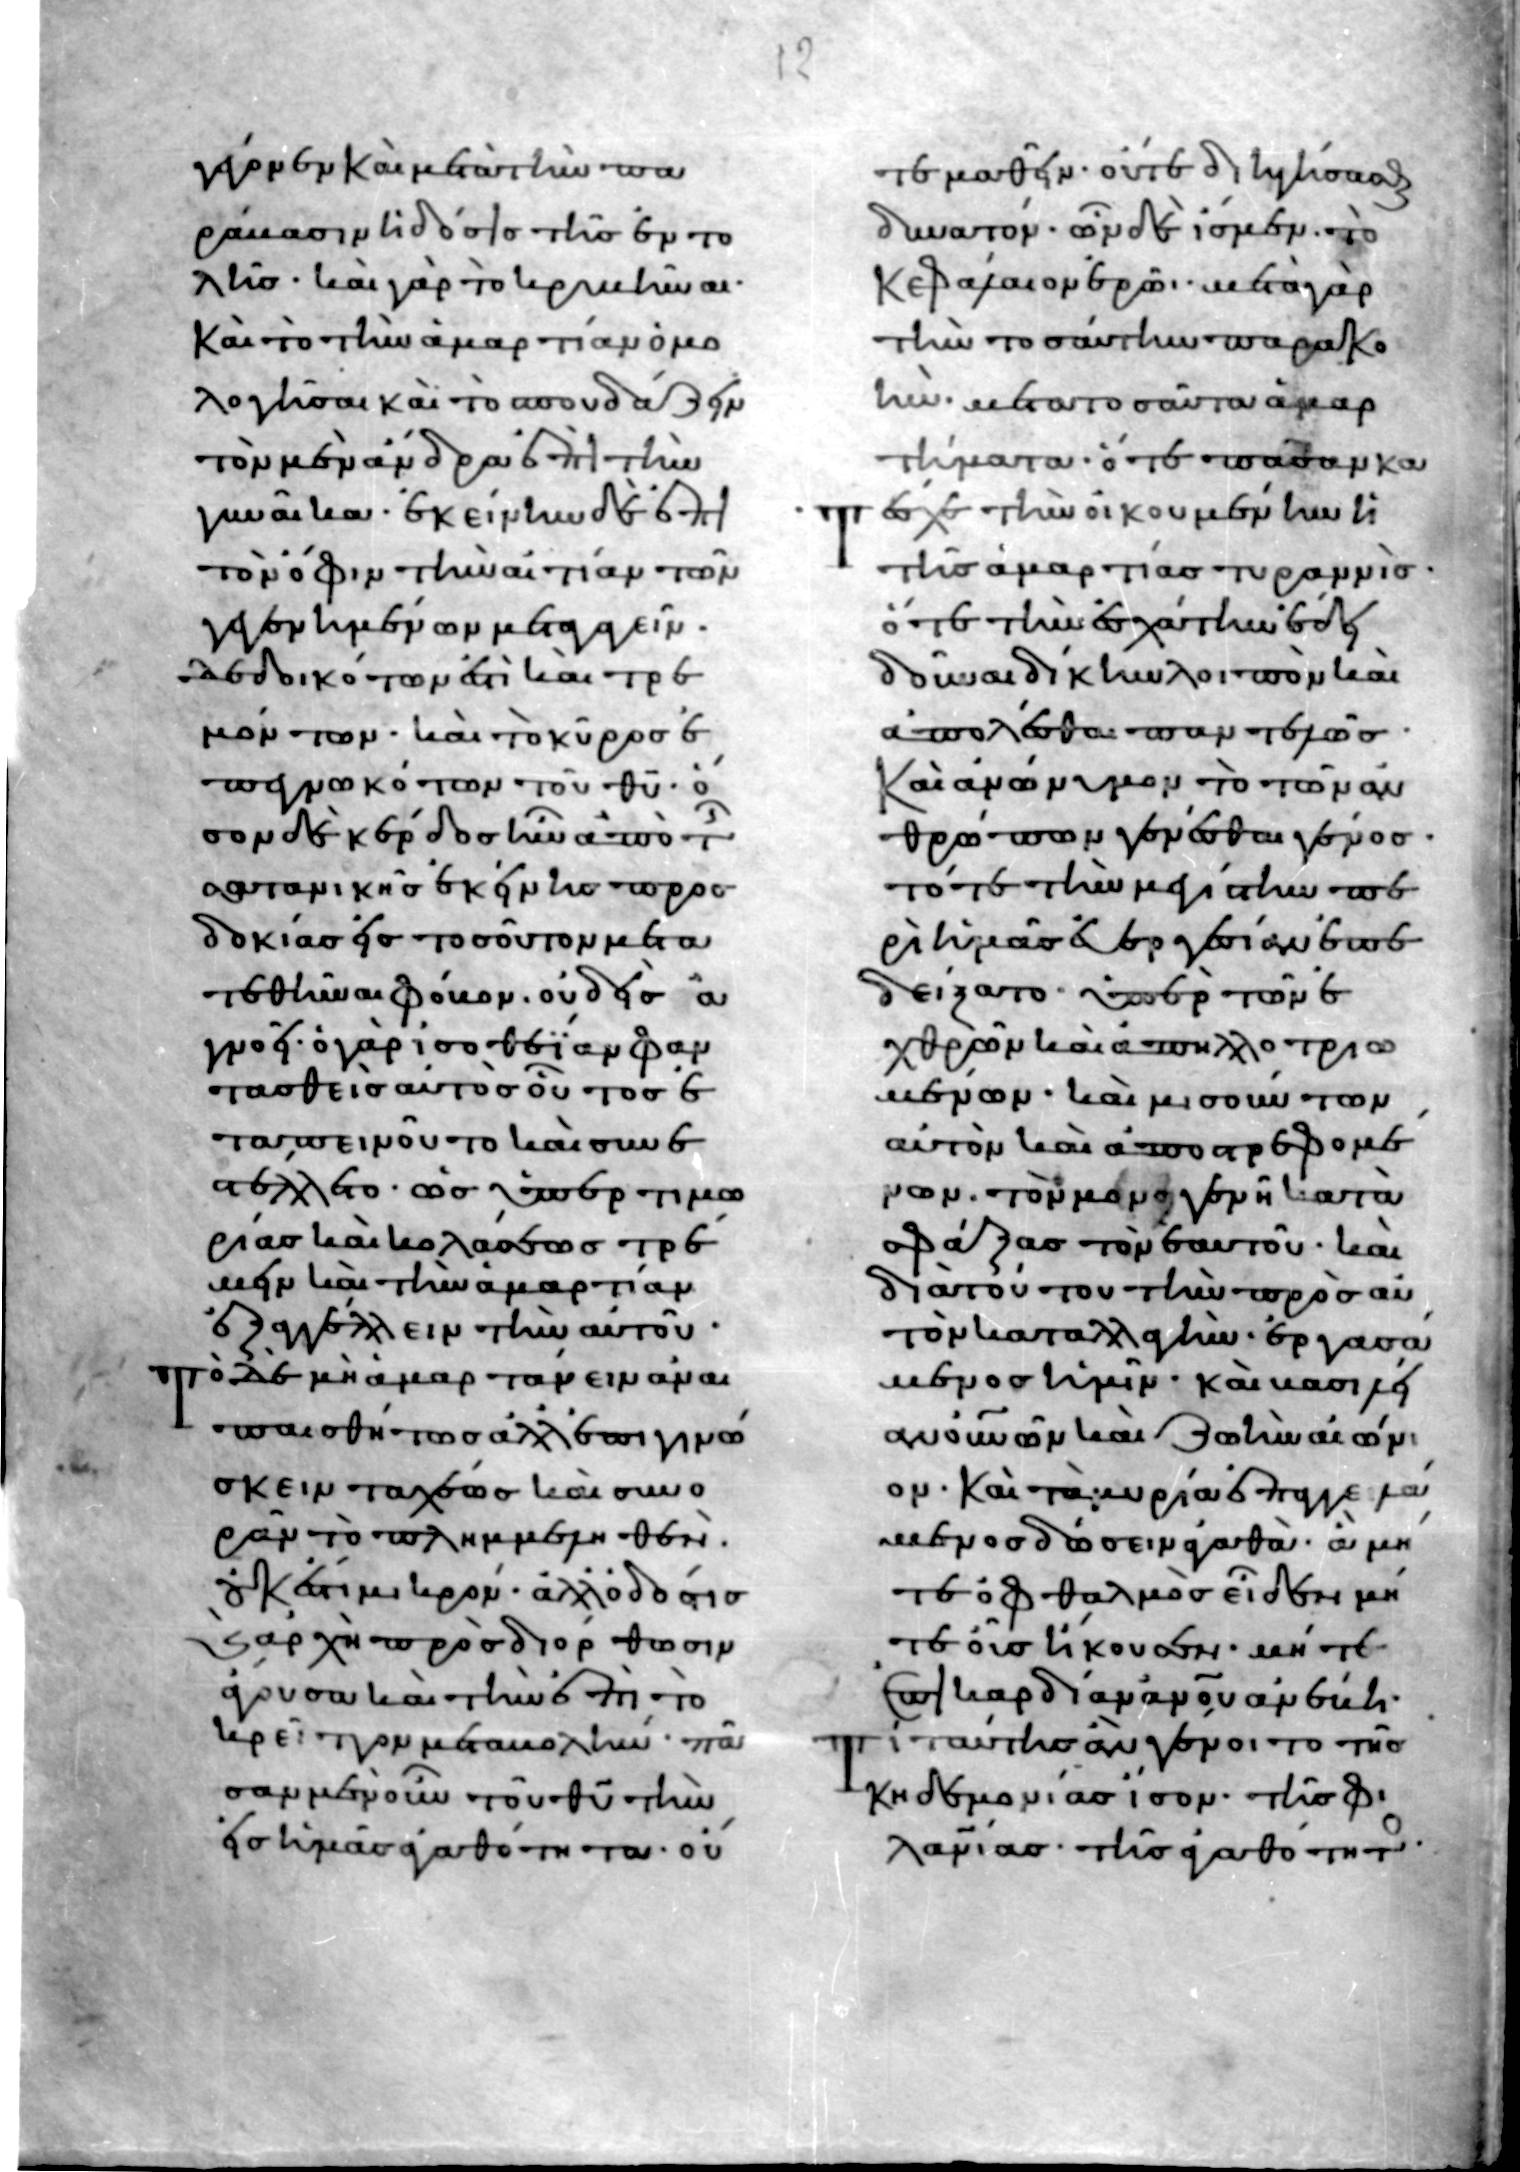 12
γέρνεν καὶ μετὰ τὴν πα
ράβασιν ἡ δόσις τῆς ἐντο
λῆς· καὶ γὰρ τὸ κρυβῆναι·
καὶ τὸ τὴν ἁμαρτίαν ὁμο
λογῆσαι καὶ τὸ σπουδάζειν
τὸν μὲν ἄνδρα ἐπὶ τὴν
γυναῖκα· ἐκείνην δὲ ἐπὶ
τὸν ὄφιν τὴν αἰτίαν τῶν
γεγενημένων μεταγαγεῖν·
δεδοικότων ἔτι καὶ τρε
μόντων· καὶ τὸ κῦρος ἐ
πεγνωκότων τοῦ θυ· ὅ
σον δὲ κέρδος ἦν ἀπὸ τ
σατανικῆς ἐκείνης προσ
δοκίας εἰς τοσοῦτον μετα
τεθῆναι φόβον· οὐδεὶς ἀ
γνοεῖ· ὁ γὰρ ἰσοθεΐαν φαν
τασθεὶς αὐτὸς οὗτος ἐ
ταπεινοῦτο καὶ συνε
στέλλετο· ὡς ὑπὲρ τιμω
ρίας καὶ κολάσεως τρέ
μειν καὶ τὴν ἁμαρτίαν
ἐξαγγέλλειν τὴν αὐτοῦ·
Τὸ δὲ μὴ ἁμαρτάνειν ἀναι
παισθήτως ἀλλ' ἐπιγινώ
σκειν ταχέως καὶ συνο
ρᾶν τὸ πλημμεληθέν·
οὐκ ἔτι μικρόν· ἀλλ' ὁδός τις
ἀρχὴ πρὸς διόρθωσιν
φέρουσα καὶ τὴν ἐπὶ τὸ
κρεῖττον μεταβολήν· πᾶ
σαν μὲν οὖν τοῦ θυ τὴν
εἰς ἡμᾶς ἀγαθότητα· οὔ
τε μαθεῖν· οὔτε διηγήσασθαι
δυνατόν· ὧν δὲ ἴσμεν· τὸ
κεφάλαιον ἐρῶ· μετὰ γὰρ
τὴν τοσαύτην παρακο
ήν· μετὰ τοσαῦτα ἁμαρ
τήματα· ὅτε πᾶσαν κα
τέσχε τὴν οἰκουμένην ἡ
τῆς ἁμαρτίας τυραννὶς·
ὅτε τὴν ἐσχάτην ἔδει
δοῦναι δίκην λοιπὸν καὶ
ἀπολέσθαι παντελῶς·
καὶ ἀνώνυμον τὸ τῶν ἀν
θρώπων γενέσθαι γένος·
τότε τὴν μεγίστην πε
ρὶ ἡμᾶς εὐεργεσίαν ἐπε
δείξατο· ὑπὲρ τῶν ἐ
χθρῶν καὶ ἀπηλλοτριω
μένων· καὶ μισούντων
αὐτὸν καὶ ἀποστρεφομέ
νων· τὸν μονογενῆ κατα
σφάξας τὸν ἑαυτοῦ· καὶ
διὰ τούτου τὴν πρὸς αὐ
τὸν καταλλαγὴν· ἐργασά
μενος ἡμῖν· καὶ βασιλεί
αν οὐνῶν καὶ ζωὴν αἰώνι
ον· καὶ τὰ μυρία ἐπαγγειλά
μενος δώσειν ἀγαθὰ· ἃ μή
τε ὀφθαλμὸς εἶδεν μή
τε οὖς ἤκουσεν· μήτε
ἐπὶ καρδίαν ἀνου ἀνέβη·
Τί ταύτης ἂν γένοιτο τῆς
κηδεμονίας ἴσον· τῆς φι
λανίας· τῆς ἀγαθότητο·